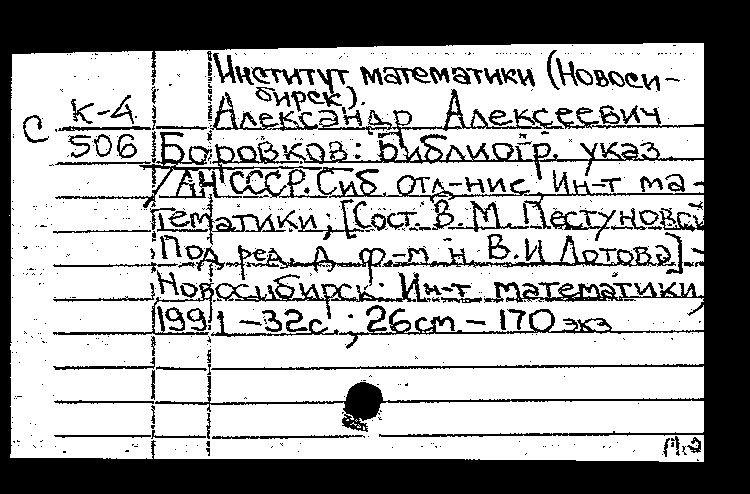 Институт математики (Новоси-
бирск).
К-4 Александр Алексеевич
С
506 Боровков: Библиогр. указ.
/ АН СССР. Сиб. отд-ние, Ин-т ма-
тематики; [Сост. В. М. Пестуновой
Под ред. д. ф.-м. н. В. И Лотова] -
Новосибирск: Ин-т математики,
1991 - 32с.; 26cm - 170 экз